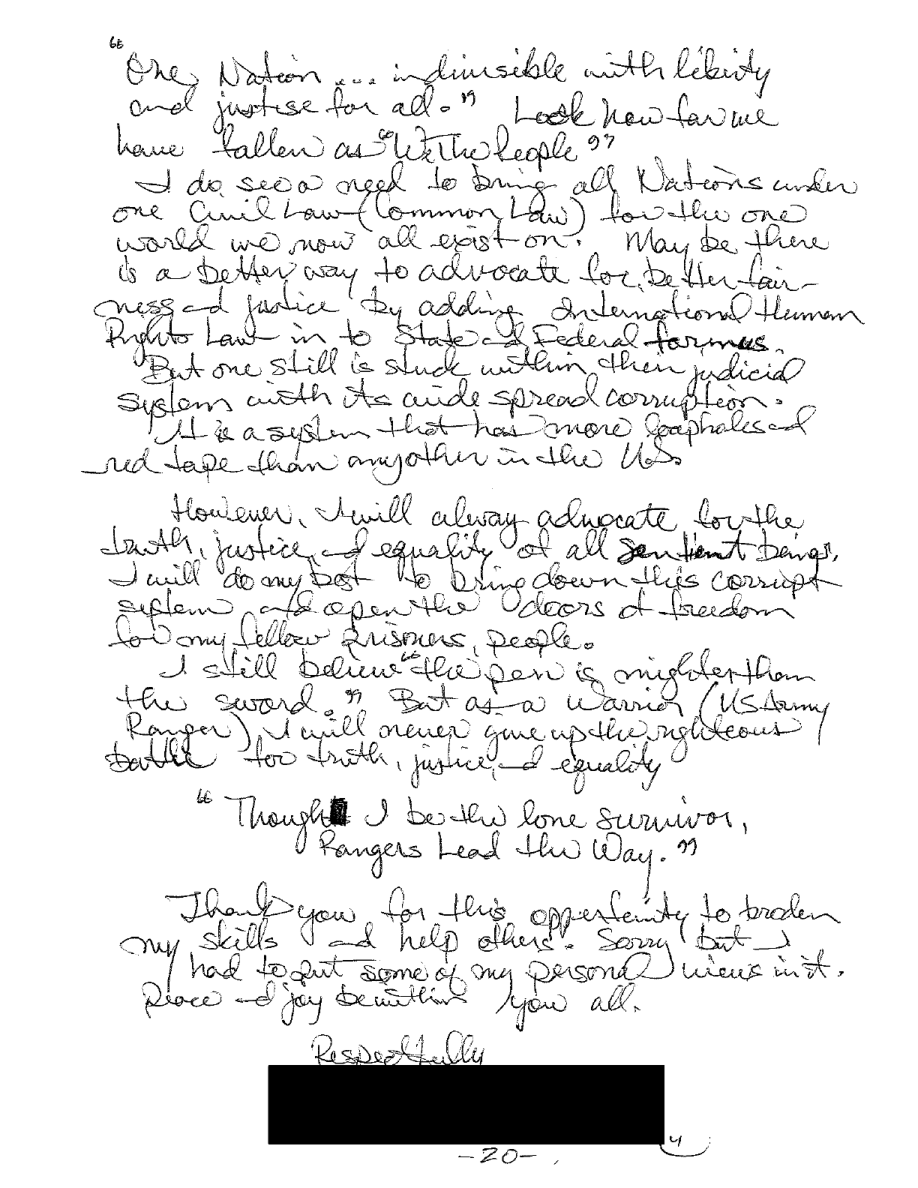 "One Nation ... indivisible with liberty
and justise for all." Look how far we
have fallen as "We The People"
I do see a need to bring all Nations under
one Civil Law (Common Law) for the one
world we now all exist on. May be there
is a better way to advocate for better fair-
ness and justice by adding International Human
Rights Law in to State and Federal
But one still is stuck within their judicial
system with its wide spread corruption.
It is a system that has more loopholes and
red tape than any other in the U.S.
However, I will alway advocate for the
truth, justice, and equality of all sentient beings.
I will do my best to bring down this corrupt
system and open the doors of freedom
for my fellow prisoners, people.
I still believe "the pen is mighter than
the sword." But as a warrior (US Army
Ranger), I will never give up the righteous
battle for truth, justice, and equality
"Though I be the lone survivor,
Rangers Lead the Way."
Thank you for this opportunity to broden
my skills and help others. Sorry but I
had to put some of my personal views in it.
Peace and joy be within you all.
Respectfully
4
-20-